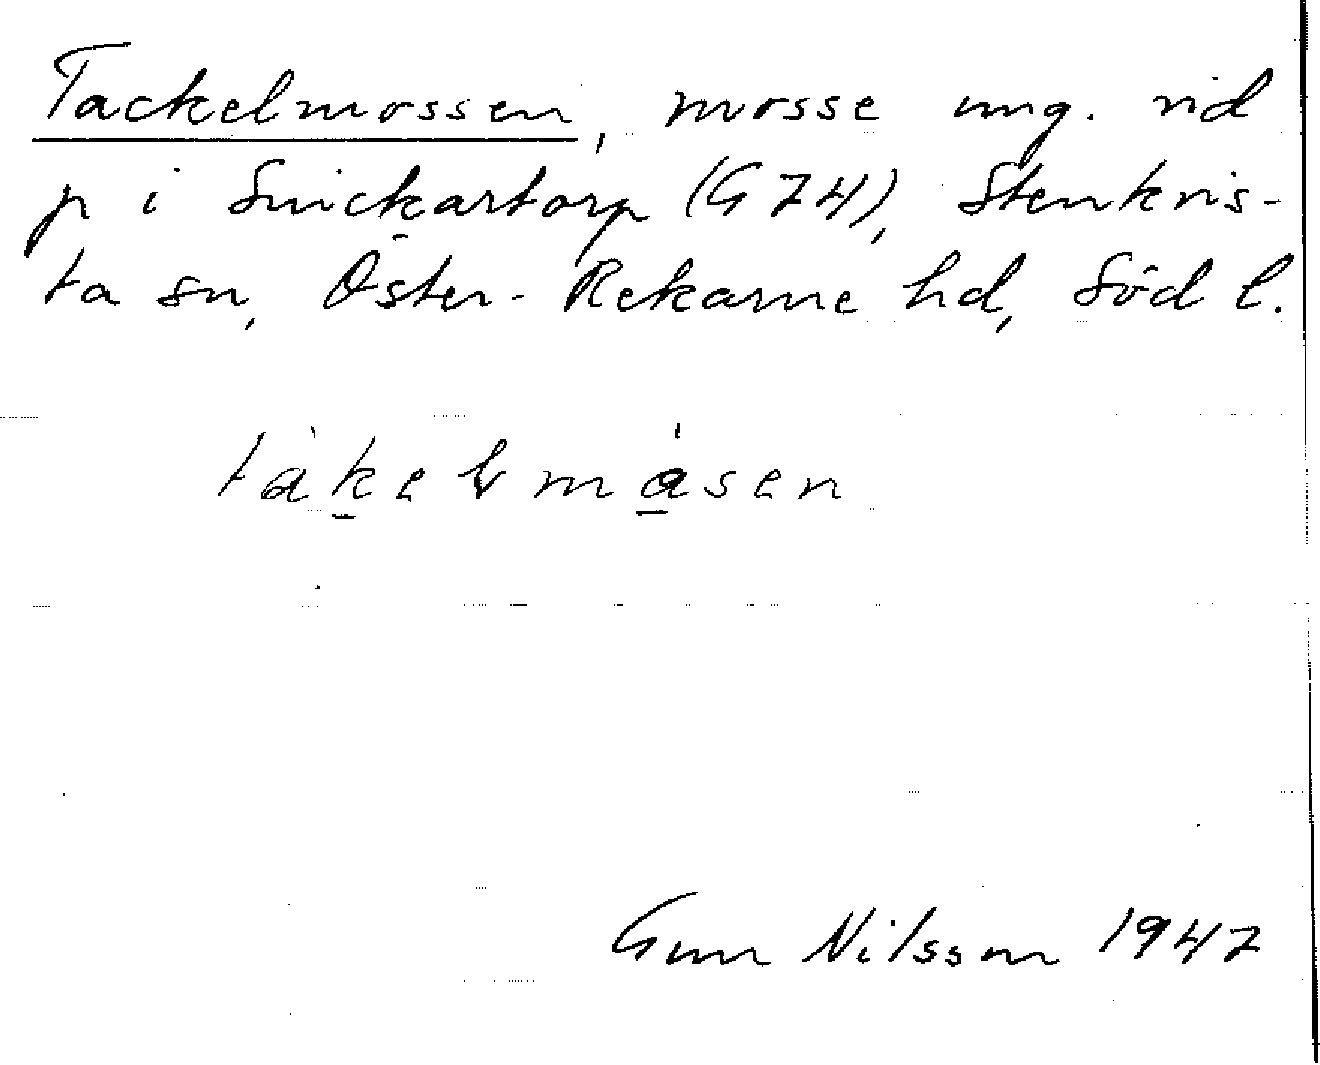 Tackelmossen, mosse ung. vid
p i Snickartorp (G 74), Stenkvis-
ta sn, Öster-Rekarne hd, Söd l.
tàkelmå̱sen
Gun Nilsson 1947